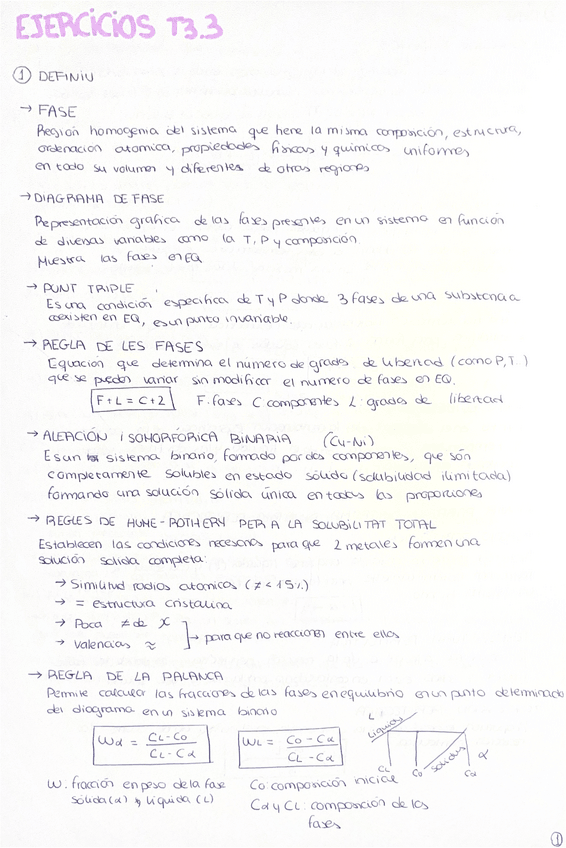 EJERCICIOS T3.3
① DEFINIU
→ FASE
Region homogenia del sistema que tiene la misma composición, estructura,
ordenacion atomica, propiedades fisicas y quimicas uniformes
en todo su volumen y diferentes de otras regiones
→ DIAGRAMA DE FASE
Representación grafica de las fases presentes en un sistema en función
de diversas variables como la T, P y composición
Muestra las fases en EQ
→ PUNT TRIPLE
Es una condición especifica de T y P donde 3 fases de una substancia
coexisten en EQ, es un punto invariable.
→ REGLA DE LES FASES
Equación que determina el número de grados de libertad (como P, T.)
que se pueden variar sin modificar el numero de fases en EQ.
F + L = C + 2 F: fases C componentes L: grados de libertad
→ ALEACIÓN ISOMORFÓRICA BINARIA (Cu-Ni)
Es un sistema binario, formado por dos componentes, que són
completamente solubles en estado sólido (solubilidad ilimitada)
formando una solución sólida única en todas las proporciones
→ REGLES DE HUME-ROTHERY PER A LA SOLUBILITAT TOTAL
Establecen las condiciones necesarias para que 2 metales formen una
solución solida completa:
→ Similitud radios atomicos (≠ < 15%)
→ = estructura cristalina
→ Poca ≠ de X
→ Valencias ≈
→ para que no reaccionen entre ellos
→ REGLA DE LA PALANCA
Permite calcular las fracciones de las fases en equilibrio en un punto determinado
del diagrama en un sistema binario
Wα = CL - Co / CL - Cα WL = Co - Cα / CL - Cα
L
Liquidus
solidus
α
CL Co Cα
W: fracción en peso de la fase
sólida (α) y liquida (L)
Co: composición inicial
Cα y CL: composición de las
fases
①